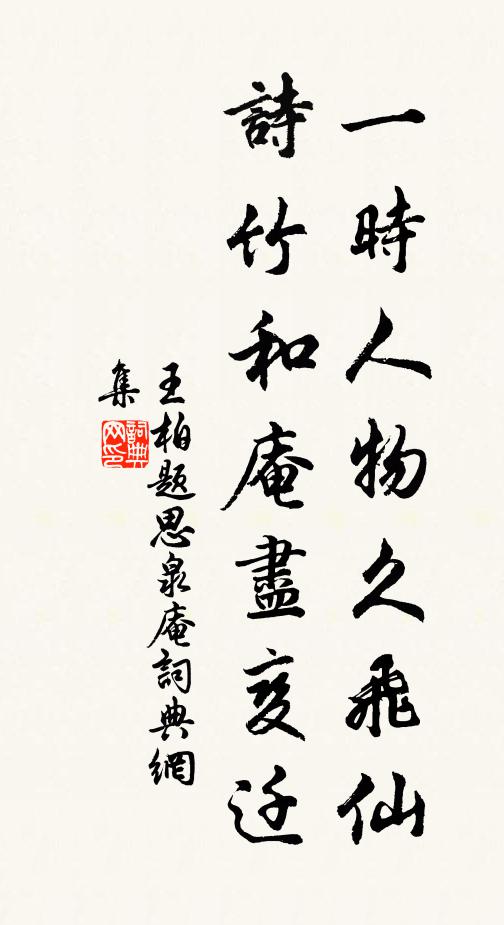 一時人物久飛仙
詩竹和庵盡变迁
王柏题思泉庵詞典網
集
詞典网印